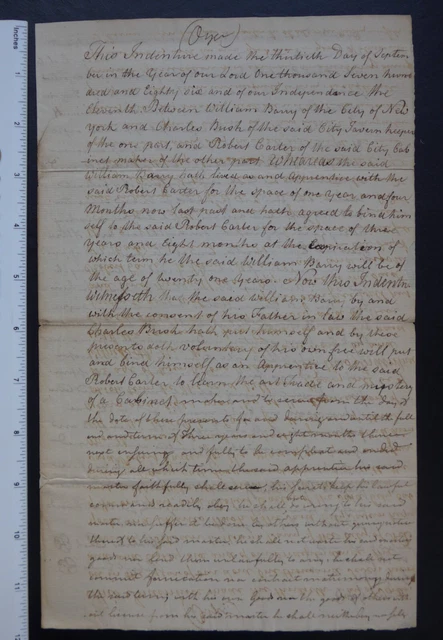 (Oyer)
This Indenture made the thirtieth Day of Septem
ber in the Year of our Lord One thousand Seven hun
dred and Eighty Six and of our Independance the
Eleventh Between William Barry of the City of New
York and Charles Bush of the said City Tavern keeper
of the one part, and Robert Carter of the said City Cab
inet maker of the other part Whereas the said
William Barry hath lived as and Apprentice with the
said Robert Carter for the space of one Year and four
Months now last past and hath agreed to bind him
self to the said Robert Carter for the space of three
Years and Eight months at the Expiration of
which term he the said William Barry will be of
the age of twenty one Years. Now this Indenture
Witnesseth that the said William Barry by and
with the consent of his Father in law the said
Charles Bush hath put himself and by these
presents doth voluntary of his own free will put
and bind himself as an Apprentice to the said
Robert Carter to learn the art trade and mistery
of a Cabinet maker and to serve from the day of
the date of these presents for and during and until the full
end and term of three years and eight months thence
next ensuing and fully to be compleat and ended
during all which term the said apprentice his said
master faithfully shall serve his secrets keep his lawful
commands readily obey he shall do no injury to his said
master nor suffer it to be done by others without giving notice
thereof to his said master he shall not waste his said masters
goods nor lend them unlawfully to any he shall not
commit fornication nor contract matrimony during
the said term with his own Goods nor the goods of others
out licence from his said master he shall neither buy nor sell